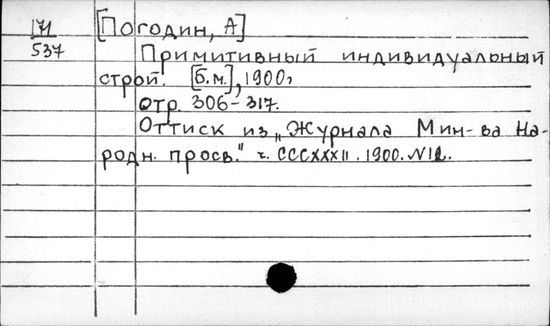 171
537
[Погодин, А]
Примитивный индивидуальный
строй. [б.м.], 1900,
стр. 306-317.
Оттиск из „Журнала Мин-ва На-
родн. просв." ч. CCCXXXII. 1900. №12.